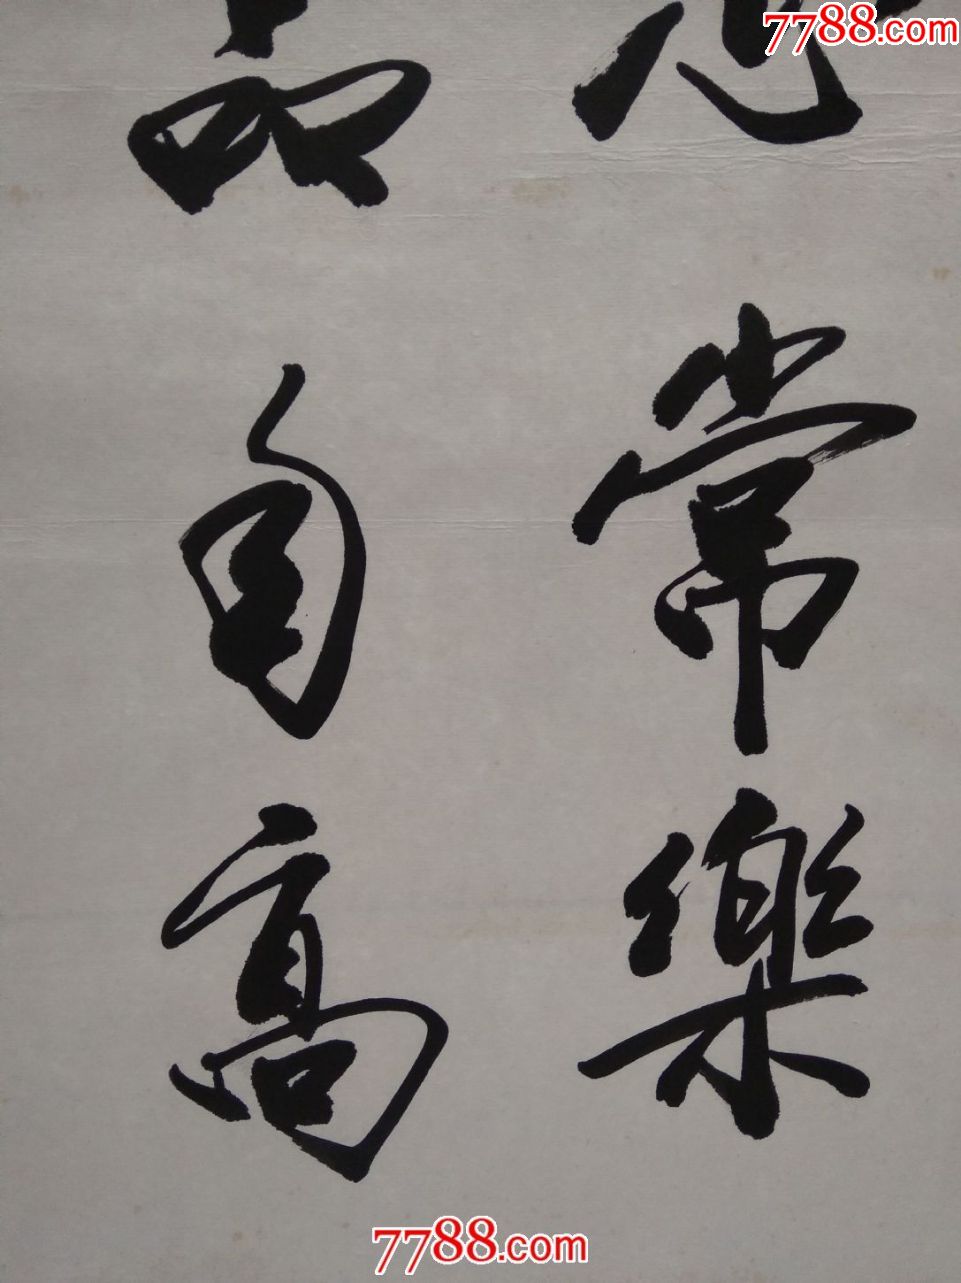 7788.com
心常樂
品自高
7788.com